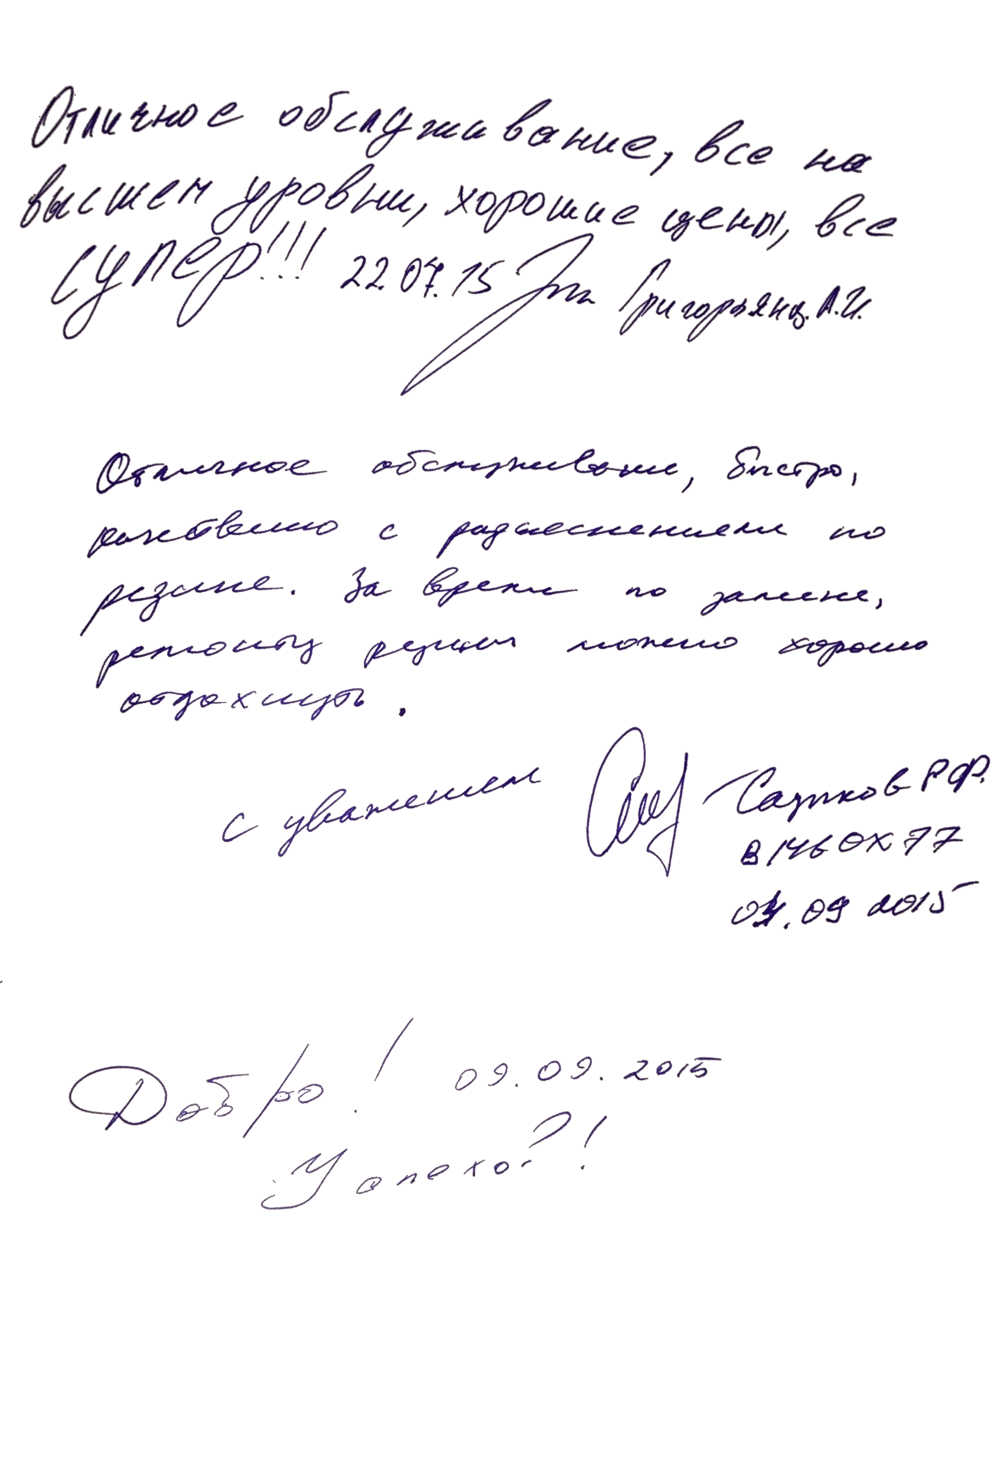 Отличное обслуживание, все на
высшем уровни, хорошие цены, все
супер!!! 22.07.15 Григорьянц. А.И.
Отличное обслуживание, быстро,
качественно с разъяснениями по
резине. За время по замене,
ремонту резины можно хорошо
отдохнуть.
с уважением
Садиков Р.Ф.
В146ОХ77
09.2015
Добро! 09.09.2015
Успехов!